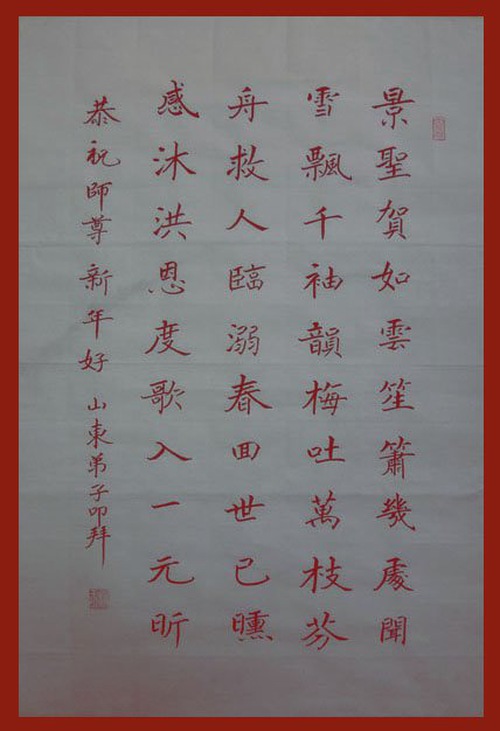 景聖賀如雲笙簫幾處聞
雪飄千袖韻梅吐萬枝芬
舟救人臨溺春回世已曛
感沐洪恩度歌入一元昕
恭祝師尊新年好 山東弟子叩拜